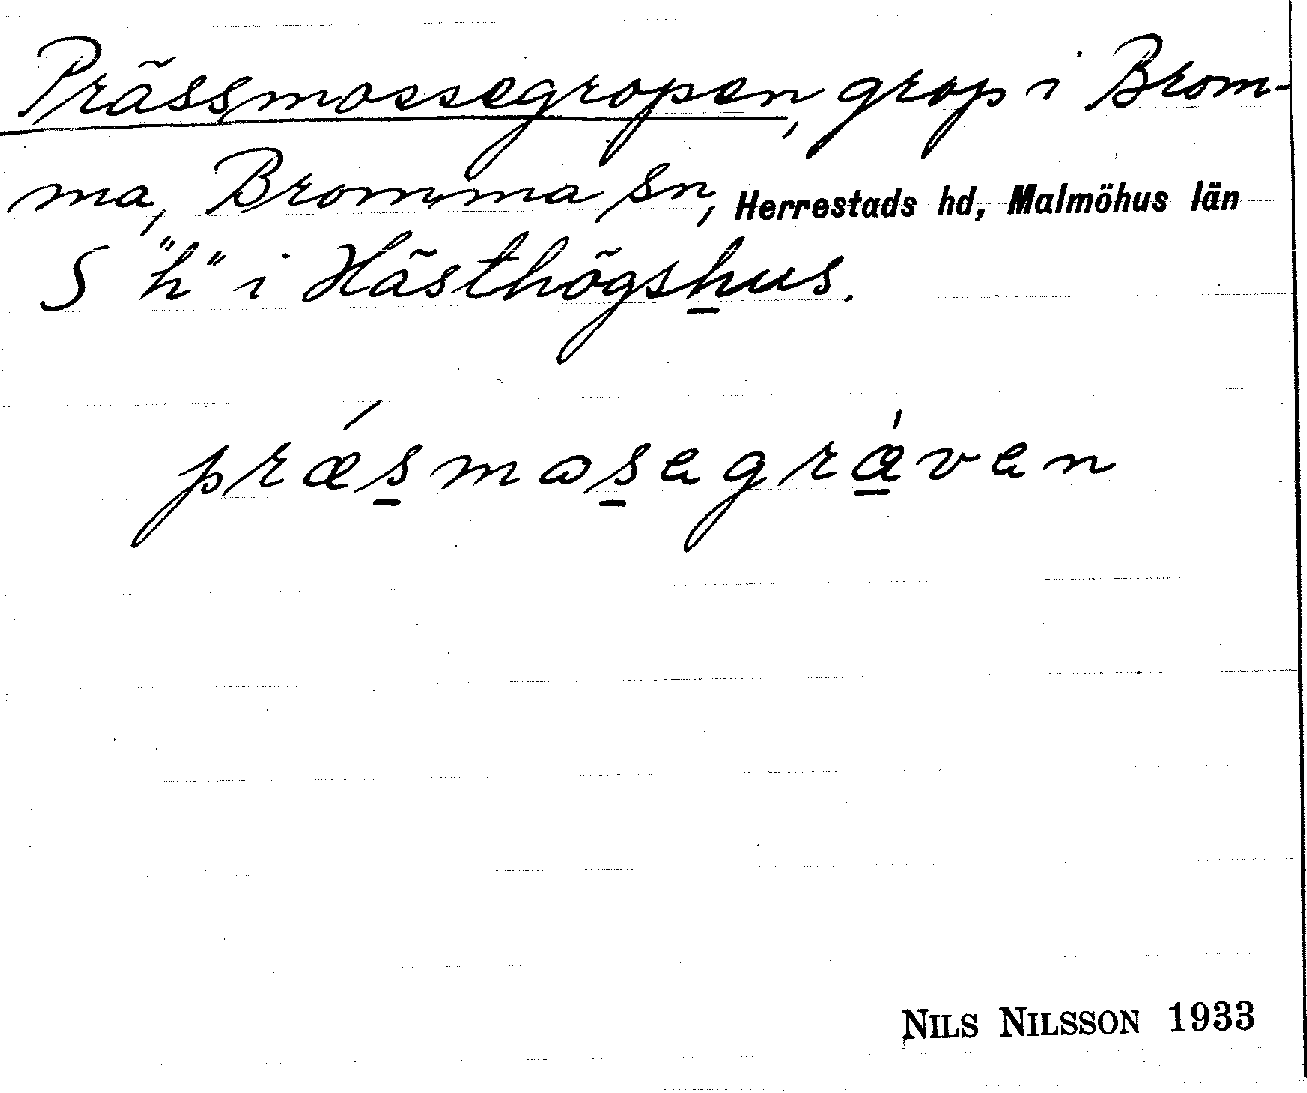 Prässmossegropen, grop i Brom-
ma, Bromma sn, Herrestads hd, Malmöhus län
S "h" i Hästhögshus.
prǽsmosegræ̀ven
NILS NILSSON 1933